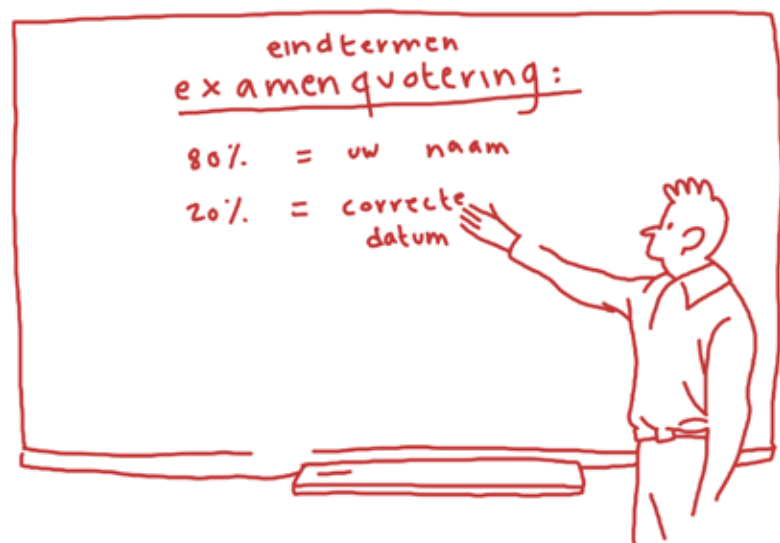 eindtermen
examenquotering:
80% = uw naam
20% = correcte
datum